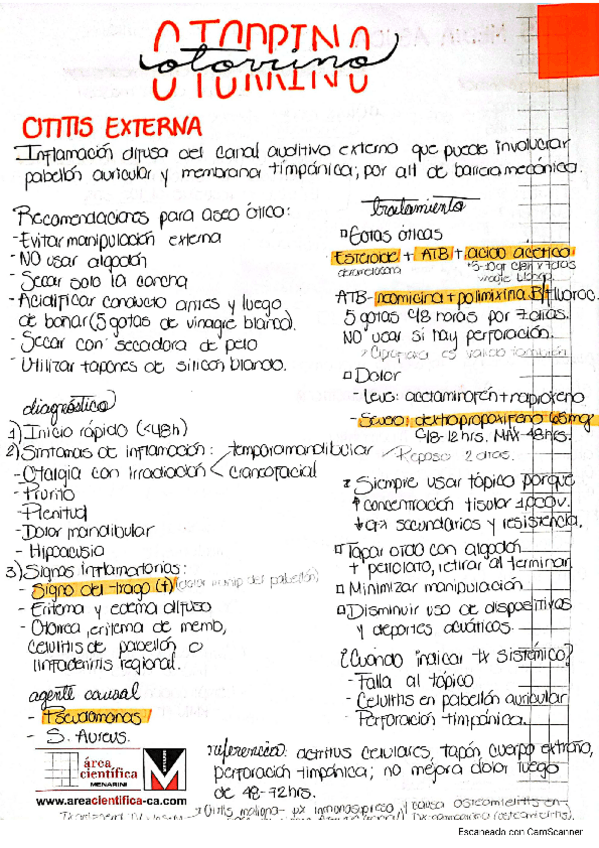 OTORRINO
otorrino
OTITIS EXTERNA
Inflamación difusa del canal auditivo externo que puede involucrar
pabellón auricular y membrana timpánica; por alt de barrera mecánica.
Recomendaciones para aseo ótico:
- Evitar manipulación externa
- NO usar algodón
- Secar solo la concha
- Acidificar conducto antes y luego
de bañar (5 gotas de vinagre blanco).
- Secar con secadora de pelo
- Utilizar tapones de silicon blando.
diagnóstico
1) Inicio rápido (<48h)
2) Síntomas de inflamación:
- Otalgia con irradiación < temporomandibular
craneofacial
- Prurito
- Plenitud
- Dolor mandibular
- Hipoacusia
3) Signos inflamatorios:
- Signo del trago (+) (dolor manip del pabellón)
- Eritema y edema difuso
- Otorrea, eritema de memb,
celulitis de pabellón o
linfadenitis regional.
agente causal
- Pseudomonas
- S. Aureus.
tratamiento
Gotas óticas
Esteroide + ATB + ácido acético
ATB - neomicina + polimixina B/fluoroc.
5 gotas c/8 horas por 7 días.
NO usar si hay perforación.
también
Dolor
- Leve: acetaminofén + naproxeno
- Severo: dextropropoxifeno 65mg
c/8-12hrs. MAX-48hrs.
Reposo 2 días.
Siempre usar tópico porque
↑ concentración tisular 1,000v.
secundarios y resistencia.
Tapar oído con algodón
retirar al terminar
Minimizar manipulación
Disminuir uso de dispositivos
y deportes acuáticos.
¿Cuándo indicar tx sistémico?
- Falla al tópico
- Celulitis en pabellón auricular
- Perforación timpánica.
referencia: detritus celulares, tapón, cuerpo extraño,
perforación timpánica; no mejora dolor luego
de 48-72hrs.
área
científica
MENARINI
www.areacientifica-ca.com
Otitis maligna - px inmunosupreso y causa osteomielitis en
Escaneado con CamScanner